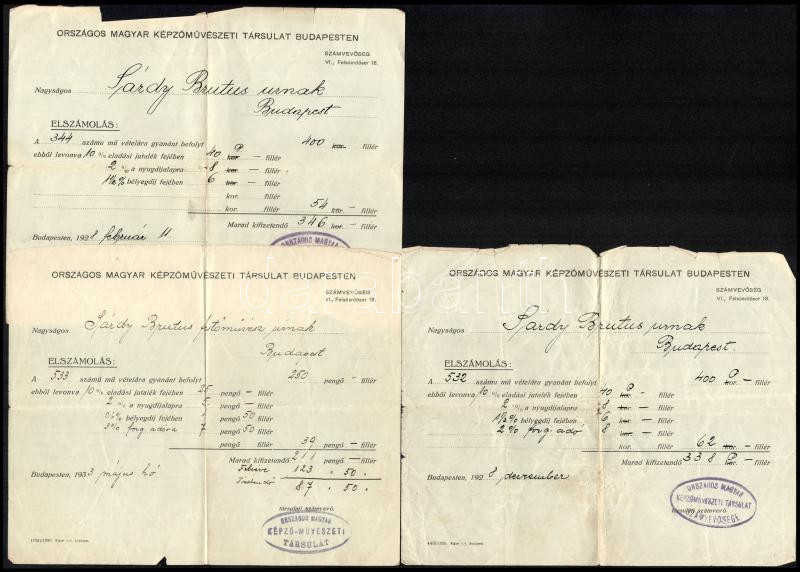 ORSZÁGOS MAGYAR KÉPZŐMŰVÉSZETI TÁRSULAT BUDAPESTEN
SZÁMVEVŐSÉG
VI., Felsőerdősor 18.
Nagyságos Sárdy Brutus urnak
Budapest
ELSZÁMOLÁS:
A 344 számu mű vételára gyanánt befolyt 400 P kor. — fillér
ebből levonva 10 % eladási jutalék fejében 40 P kor. — fillér
2 % a nyugdíjalapra 8 kor. — fillér
1½ % bélyegdíj fejében 6 kor. — fillér
kor. fillér
kor. fillér 54 kor. — fillér
Marad kifizetendő 346 kor. — fillér
Budapesten, 1928 február 11.
ORSZÁGOS MAGYAR
ORSZÁGOS MAGYAR KÉPZŐMŰVÉSZETI TÁRSULAT BUDAPESTEN
SZÁMVEVŐSÉG
VI., Felsőerdősor 18.
Nagyságos Sárdy Brutus festőművész urnak
Budapest
ELSZÁMOLÁS:
A 533 számú mű vételára gyanánt befolyt 250 pengő — fillér
ebből levonva 10 % eladási jutalék fejében 25 pengő — fillér
2 % a nyugdíjalapra 5 pengő — fillér
bélyegdíj fejében pengő 50 fillér
3 % forg. adóra 7 pengő 50 fillér
pengő fillér 39 pengő — fillér
Marad kifizetendő 211 pengő — fillér
123 . 50 .
87 . 50 .
Budapesten, 1933 május hó
társulati számvevő.
ORSZÁGOS MAGYAR
KÉPZŐ-MŰVÉSZETI
TÁRSULAT
ORSZÁGOS MAGYAR KÉPZŐMŰVÉSZETI TÁRSULAT BUDAPESTEN
SZÁMVEVŐSÉG
VI., Felsőerdősor 18.
Nagyságos Sárdy Brutus urnak
Budapest.
ELSZÁMOLÁS:
A 532 számu mű vételára gyanánt befolyt 400 P kor. — fillér
ebből levonva 10 % eladási jutalék fejében 40 P kor. — fillér
2 % a nyugdíjalapra 8 kor. — fillér
1½ % bélyegdíj fejében 6 kor. — fillér
2 % forg. adó 8 kor. — fillér
kor. fillér 62 kor. — fillér
Marad kifizetendő 338 P kor. — fillér
Budapesten, 1928 december
ORSZÁGOS MAGYAR
KÉPZŐMŰVÉSZETI TÁRSULAT
SZÁMVEVŐSÉGE
társulati számvevő.
darabanth